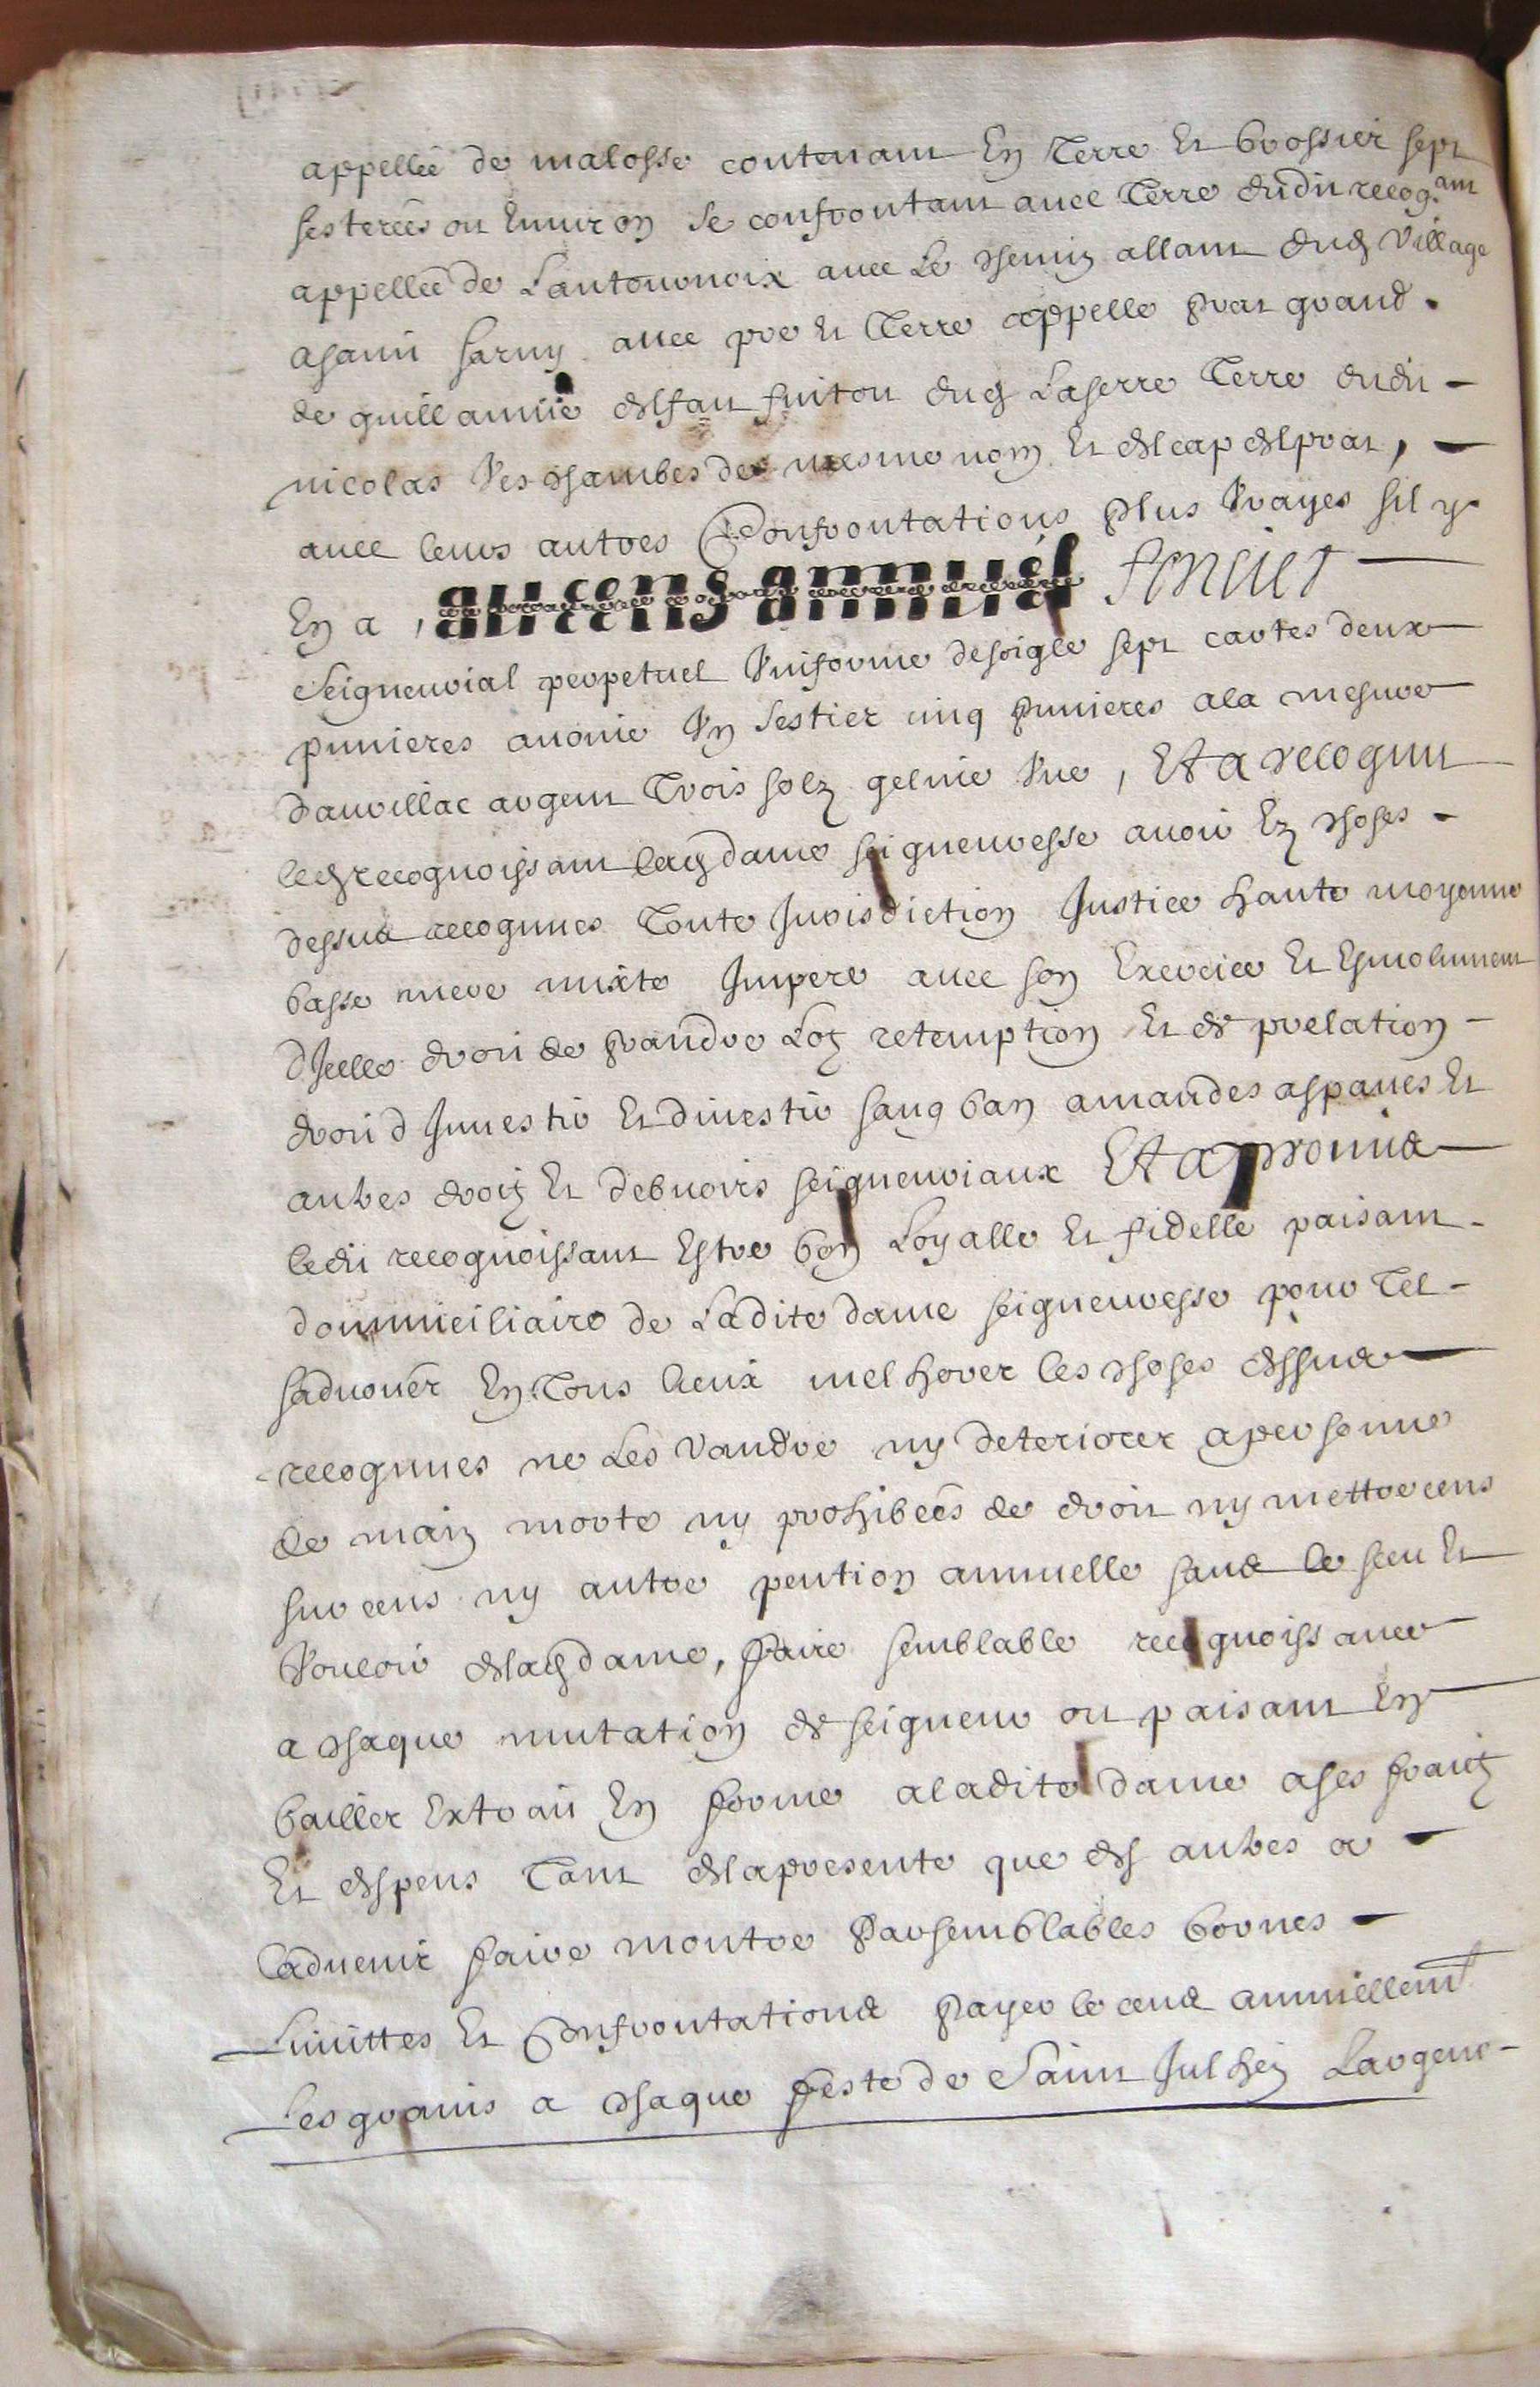 appellée de malosse contenant En Terre Et brossier sept
sesterées ou Enuiron se confrontant auec Terre dudit recog.ant
appellée de Lantouonoix auec Le chemin allant dud Village
asaint sarny auec pré Et Terre appelle prat grand.
de guillaumie delfau fuitou dud Laserre Terre dudit -
nicolas Des chambes de mesme nom Et delcap delprat, -
auec leurs autres Confrontations plus Vrayes sil y
En a, au cens annuel foncier
Seigneurial perpetuel Vniforme desoigle sept cartes deux
punieres auoine Vn Sestier cinq punieres ala mesure
dauvillac argent Trois solz geline Vne, Et a recognu
led recognoissant lad dame seigneuresse auoir Ez choses -
dessus recognues Toute Jurisdiction Justice haute moyenne
basse mere mixte Impere auec son Exercice Et Esmolument
dJcelle droit de prandre Lotz retemption Et de prelation -
droit d Jnuestir Et diuestir sang ban amandes aspaues Et
autres droitz Et debuoirs seigneuriaux Et a promis
ledit recognoissant Estre bon Loyalle Et fidelle paisant -
dommiciliaire de Ladite dame seigneuresse pour Tel -
saduouer En Tous lieux melhorer les choses dessus
recognues ne Les Vandre ny deteriorer apersonne
de main morte ny prohibées de droit ny mettre cens
sur cens ny autre pention annuelle sans le sceu Et
Vouloir delad dame, faire semblable recognoissance
a chaque mutation de seigneur ou paisant En
bailler Extrait En forme aladite dame ases fraitz
Et despens Tant delapresente que des autres a -
Laduenir faire montre parsemblables bornes -
Limittes Et Confrontations payer le cens annuellemt
Les grains a chaque feste de Saint Julhen Largent -